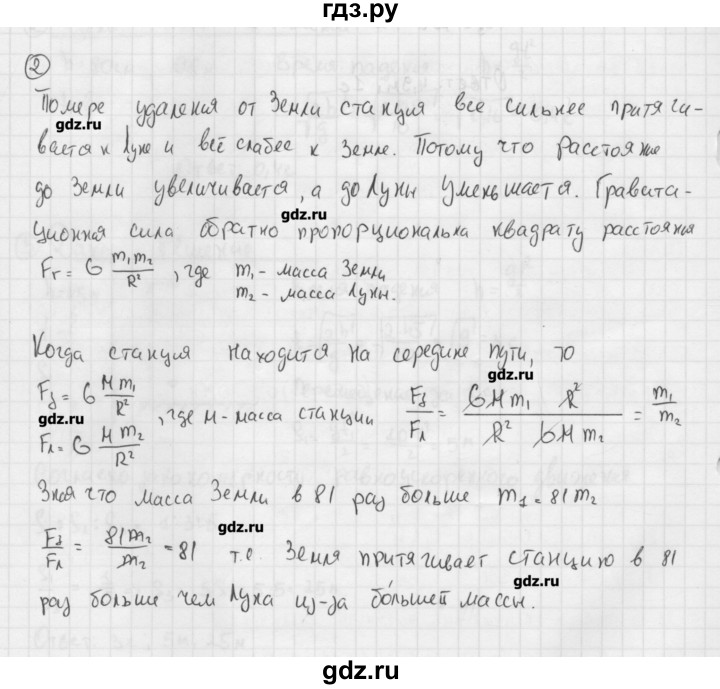 гдз.ру
②
По мере удаления от Земли станция все сильнее притяги-
gdz.ru
вается к Луне и всё слабее к Земле. Потому что расстояние
до Земли увеличивается, а до Луны уменьшается. Гравита-
gdz.ru
ционная сила обратно пропорциональна квадрату расстояния
Fг = G m₁m₂/R² , где m₁ - масса Земли
m₂ - масса Луны.
Когда станция находится на середине пути, то
gdz.ru
Fз = G M m₁/R²
gdz.ru
Fл = G M m₂/R² , где M - масса станции Fз/Fл = G M m₁ R²/R² G M m₂ = m₁/m₂
Зная что масса Земли в 81 раз больше m₁ = 81 m₂
gdz.ru
Fз/Fл = 81m₂/m₂ = 81 т.е. Земля притягивает станцию в 81
gdz.ru
раз больше чем Луна из-за бо́льшей массы.
gdz.ru